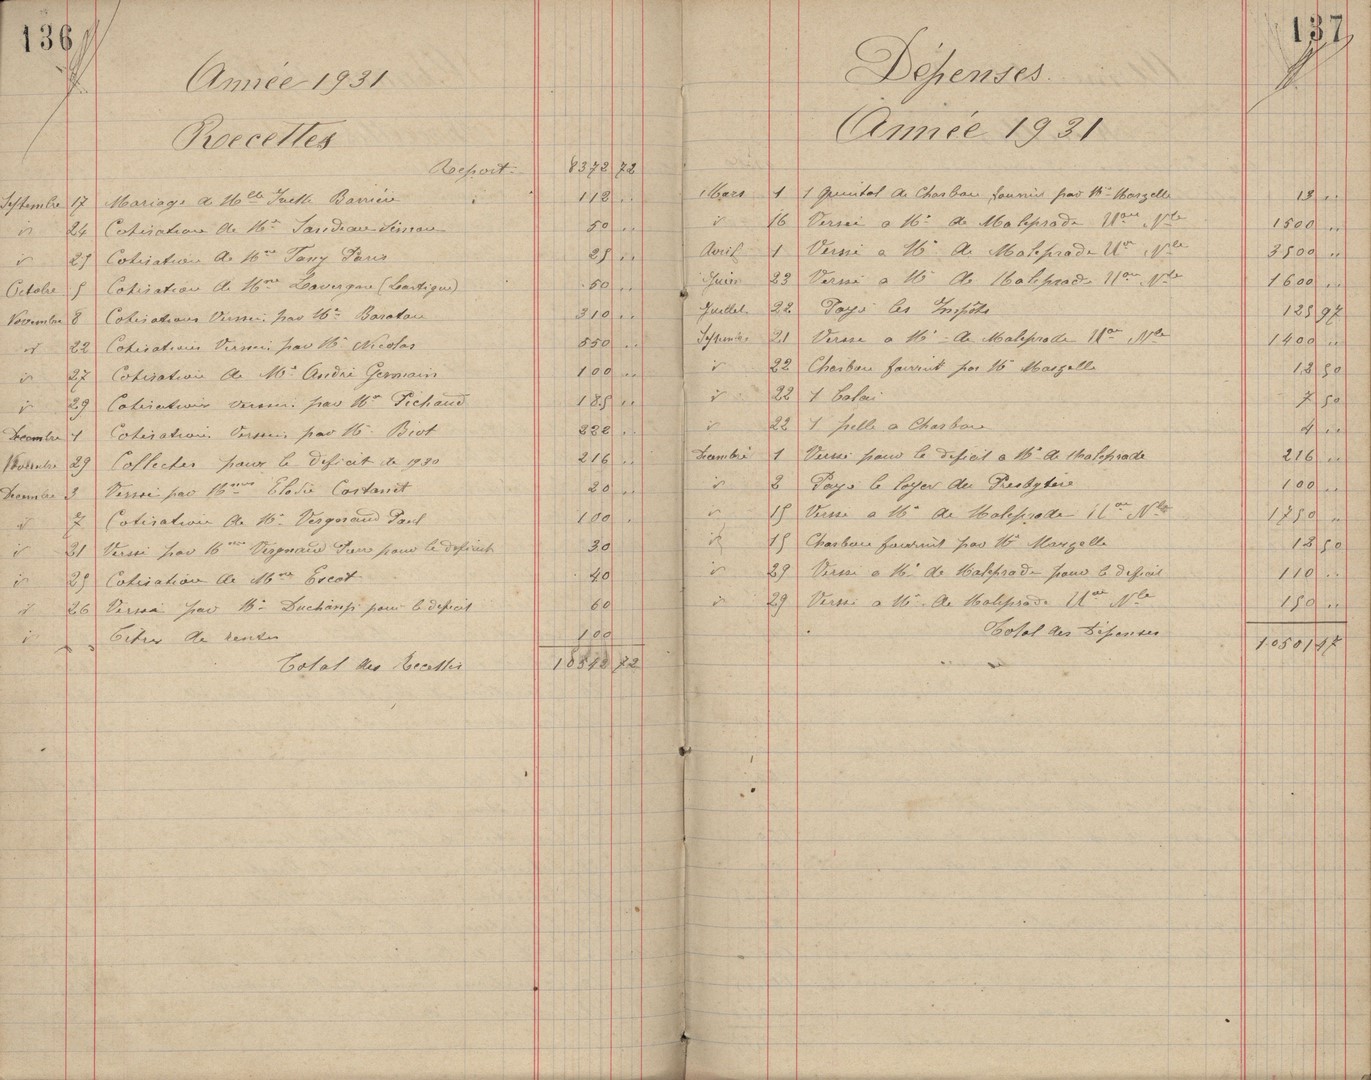 136
Année 1931
Recettes
Report 8372 72
Septembre 17 Mariage de Mlle Barrière 112 "
" 24 Cotisation de Mr 50 "
" 25 Cotisation de Mme Tany Paris 25 "
Octobre 5 Cotisation de Mme Lavergne (Lartigue) 50 "
Novembre 8 Cotisations Versées par Mr Baratou 310 "
" 22 Cotisations Versées par Mr Nicolas 550 "
" 27 Cotisation de Mr André Germain 100 "
" 29 Cotisations versées par Mr Pichaud 185 "
Decembre 1 Cotisations Versées par Mr Biot 222 "
Novembre 29 Collectes pour le deficit de 1930 216 "
Decembre 3 Versé par Mme Elodie Castanet 20 "
" 7 Cotisation de Mr Vergnaud Paul 100 "
" 21 Versé par Mme Vergnaud pour le deficit 30
" 25 Cotisation de Mme Escot 40
" 26 Versé par Mr Duchamp pour le deficit 60
" Titres de rentes 100
Total des Recettes 10542 72
137
Dépenses
Année 1931
Mars 1 1 Quintal de Charbon fournis par Mr Mazelle 13 "
" 16 Versé a Mr de Maleprade Uon Nle 1500 "
Avril 1 Versé a Mr de Maleprade Uon Nle 3500 "
Juin 23 Versé a Mr de Maleprade Uon Nle 1600 "
Juillet 22 Payé les Impôts 125 97
Septembre 21 Versé a Mr de Maleprade Uon Nle 1400 "
" 22 Charbon fournit par Mr Mazelle 12 50
" 22 1 balai 7 50
" 22 1 pelle a Charbon 4 "
Decembre 1 Versé pour le deficit a Mr de Maleprade 216 "
" 2 Payé le loyer du Presbytère 100 "
" 15 Versé a Mr de Maleprade Uon Nle 1750 "
" 15 Charbon fournit par Mr Mazelle 12 50
" 29 Versé a Mr de Maleprade pour le deficit 110 "
" 29 Versé a Mr de Maleprade Uon Nle 150 "
Total des Dépenses 10501 47